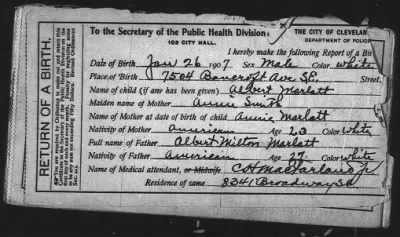 To the Secretary of the Public Health Division: THE CITY OF CLEVELAN
102 CITY HALL. DEPARTMENT OF POLIC
I hereby make the following Report of a Bir
Date of Birth Jan 26 1907 Sex Male Color white
Place of Birth 7504 Bancroft Ave S.E. Street,
Name of child (if any has been given) Albert Marlatt
Maiden name of Mother Annie Smith
Name of Mother at date of birth of child Annie Marlatt
Nativity of Mother American Age 23 Color white
Full name of Father Albert Milton Marlatt
Nativity of Father American Age 27 Color white
Name of Medical attendant, or Midwife C H Macfarland Jr
Residence of same 8341 Broadway SE
RETURN OF A BIRTH.